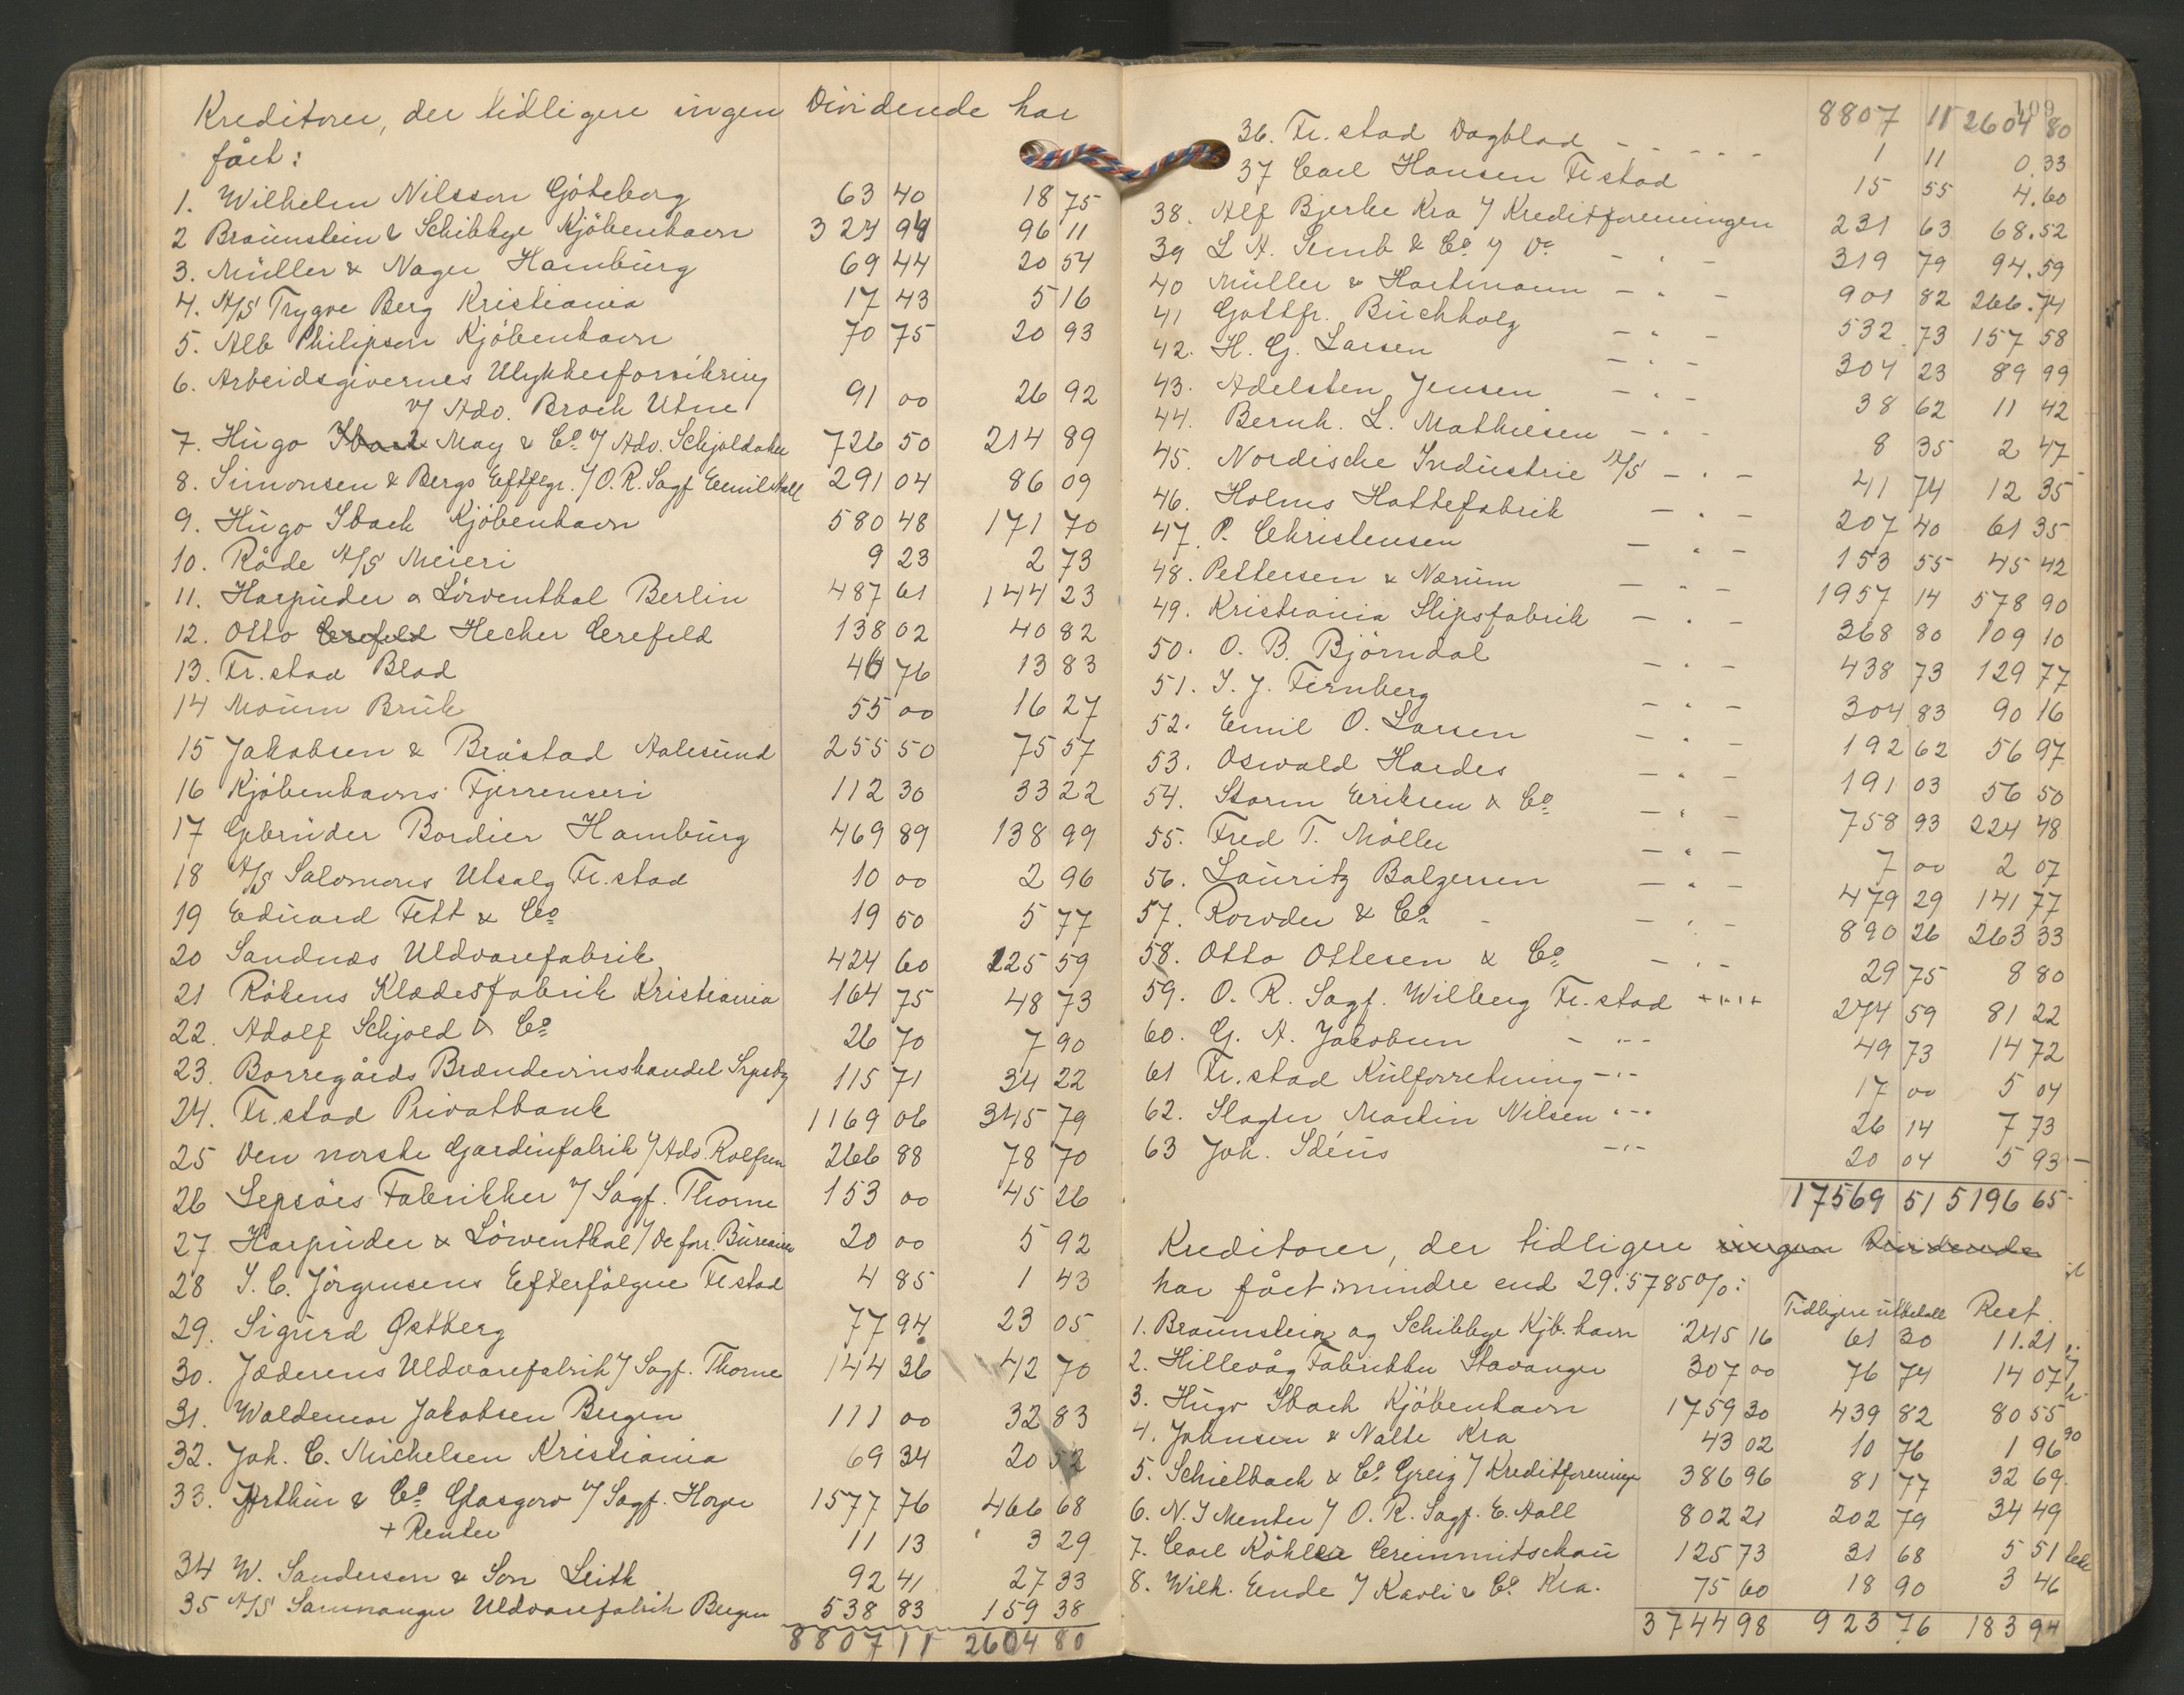 Kreditorer, der tidligere ingen Dividende har
fået:
1. Wilhelm Nilsson Göteborg 63 40 18 75
2 Braunstein & Schibbye Kjöbenhavn 324 94 96 11
3. Müller & Nager Hamburg 69 44 20 54
4. A/S Trygve Berg Kristiania 17 43 5 16
5. Alb Philipson Kjöbenhavn 70 75 20 93
6. Arbeidsgivernes Ulykkesforsikring
v/ Adv. Broch Utne 91 00 26 92
7. Hugo May & Co v/ Adv. Schjoldager 726 50 214 89
8. Simonsen & Bergs Eftflgr. / O.R. Sagf Emil Aall 291 04 86 09
9. Hugo Ibach Kjöbenhavn 580 48 171 70
10. Råde A/S Meieri 9 23 2 73
11. Harpuder & Lörventhal Berlin 487 61 144 23
12. Otto Crefeld Hecker Crefeld 138 02 40 82
13. Fr.stad Blad 46 76 13 83
14 Moum Bruk 55 00 16 27
15 Jakobsen & Bråstad Aalesund 255 50 75 57
16 Kjöbenhavns Fjerrenseri 112 30 33 22
17 Gebrüder Bordier Hamburg 469 89 138 99
18 A/S Salomons Utsalg Fr.stad 10 00 2 96
19 Eduard Fett & Co 19 50 5 77
20 Sandnæs Uldvarefabrik 424 60 125 59
21 Råkens Klædesfabrik Kristiania 164 75 48 73
22. Adolf Schjold & Co 26 70 7 90
23. Borregårds Brændevinshandel Srpsbg 115 71 34 22
24. Fr.stad Privatbank 1169 06 345 79
25 Den norske Gardinfabrik / Adv. Rolfsen 266 88 78 70
26 Lepsöes Fabrikker v/ Sagf. Thorne 153 00 45 26
27 Harpuder & Lörventhal / De for. Bureauer 20 00 5 92
28 I. C. Jörgensens Efterfölgere Fr.stad 4 85 1 43
29. Sigurd Østberg 77 94 23 05
30. Jæderens Uldvarefabrik / Sagf. Thorne 144 36 42 70
31. Waldemar Jakobsen Bergen 111 00 32 83
32. Joh. C. Michelsen Kristiania 69 34 20 52
33. Arthur & Co Glasgow v/ Sagf. Horge 1577 76 466 68
+ Renter 11 13 3 29
34 W. Sanderson & Son Leith 92 41 27 33
35 A/S Samnanger Uldvarefabrik Bergen 538 83 159 38
8807 11 2604 80
109
8807 11 2604 80
36. Fr.stad Dagblad - - - - - 1 11 0.33
37 Carl Hansen Fr.stad 15 55 4.60
38. Alf Bjerke Kra / Kreditforeningen 231 63 68.52
39 L A. Semb & Co / Do - " - 319 79 94.59
40 Müller & Hartmann - " - 901 82 266.74
41 Gottfr. Buchholz - " - 532 73 157 58
42. H. G. Larsen - " - 304 23 89 99
43. Adelsten Jensen - " - 38 62 11 42
44. Bernh. L. Mathiesen - " - 8 35 2 47
45. Nordische Industrie A/S - " - 41 74 12 35
46. Holms Hattefabrik - " - 207 40 61 35
47. P. Christensen - " - 153 55 45 42
48. Pettersen & Nærum - " - 1957 14 578 90
49. Kristiania Slipsfabrik - " - 368 80 109 10
50. O. B. Björndal - " - 438 73 129 77
51. I. J. Firnberg - " - 304 83 90 16
52. Emil O. Larsen - " - 192 62 56 97
53. Oswald Hardes - " - 191 03 56 50
54. Storm Eriksen & Co - " - 758 93 224 48
55. Fred T. Möller - " - 7 00 2 07
56. Lauritz Balzersen - " - 479 29 141 77
57. Rowde & Co - - " - 890 26 263 33
58. Otto Ottesen & Co - " - 29 75 8 80
59. O. R. Sagf. Wilberg Fr.stad 274 59 81 22
60. G. A. Jakobsen - " - 49 73 14 72
61 Fr.stad Kulforretning - " - 17 00 5 04
62. Slagter Martin Nilsen - " - 26 14 7 73
63 Joh. Idéus - " - 20 04 5 93
17569 51 5196 65
Kreditorer, der tidligere ingen Dividende
har fået mindre end 29.5785%:
Tidligere utbetalt Rest.
1. Braunstein og Schibbye Kjb.havn 245 16 61 30 11.21
2. Hillevåg Fabrikker Stavanger 307 00 76 74 14 07
3. Hugo Ibach Kjöbenhavn 1759 30 439 82 80 55
4. Johnsen & Nalle Kra 43 02 10 76 1 96
5. Schielbach & Co Greiz / Kreditforeningen 386 96 81 77 32 69
6. N. I Menter / O. R. Sagf. E. Aall 802 21 202 79 34 49
7. Carl Köhler Crimmitschau 125 73 31 68 5 51
8. Wilh. Ende / Kavli & Co Kra. 75 60 18 90 3 46
3744 98 923 76 183 94